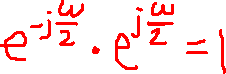 e^{-j\frac{ω}{2}} · e^{j\frac{ω}{2}} = 1